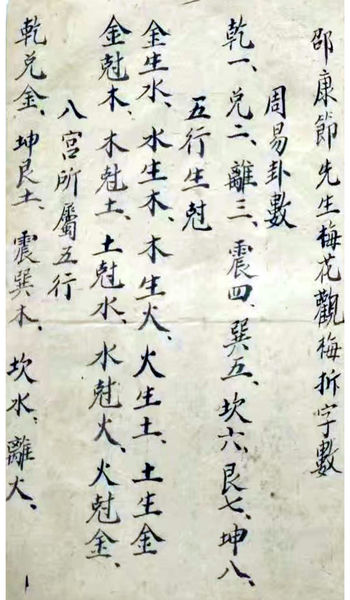 邵康節先生梅花觀梅拆字數
周易卦數
乾一、兌二、離三、震四、巽五、坎六、艮七、坤八、
五行生尅
金生水、水生木、木生火、火生土、土生金
金尅木、木尅土、土尅水、水尅火、火尅金、
八宮所屬五行
乾兌金、坤艮土、震巽木、坎水、離火、